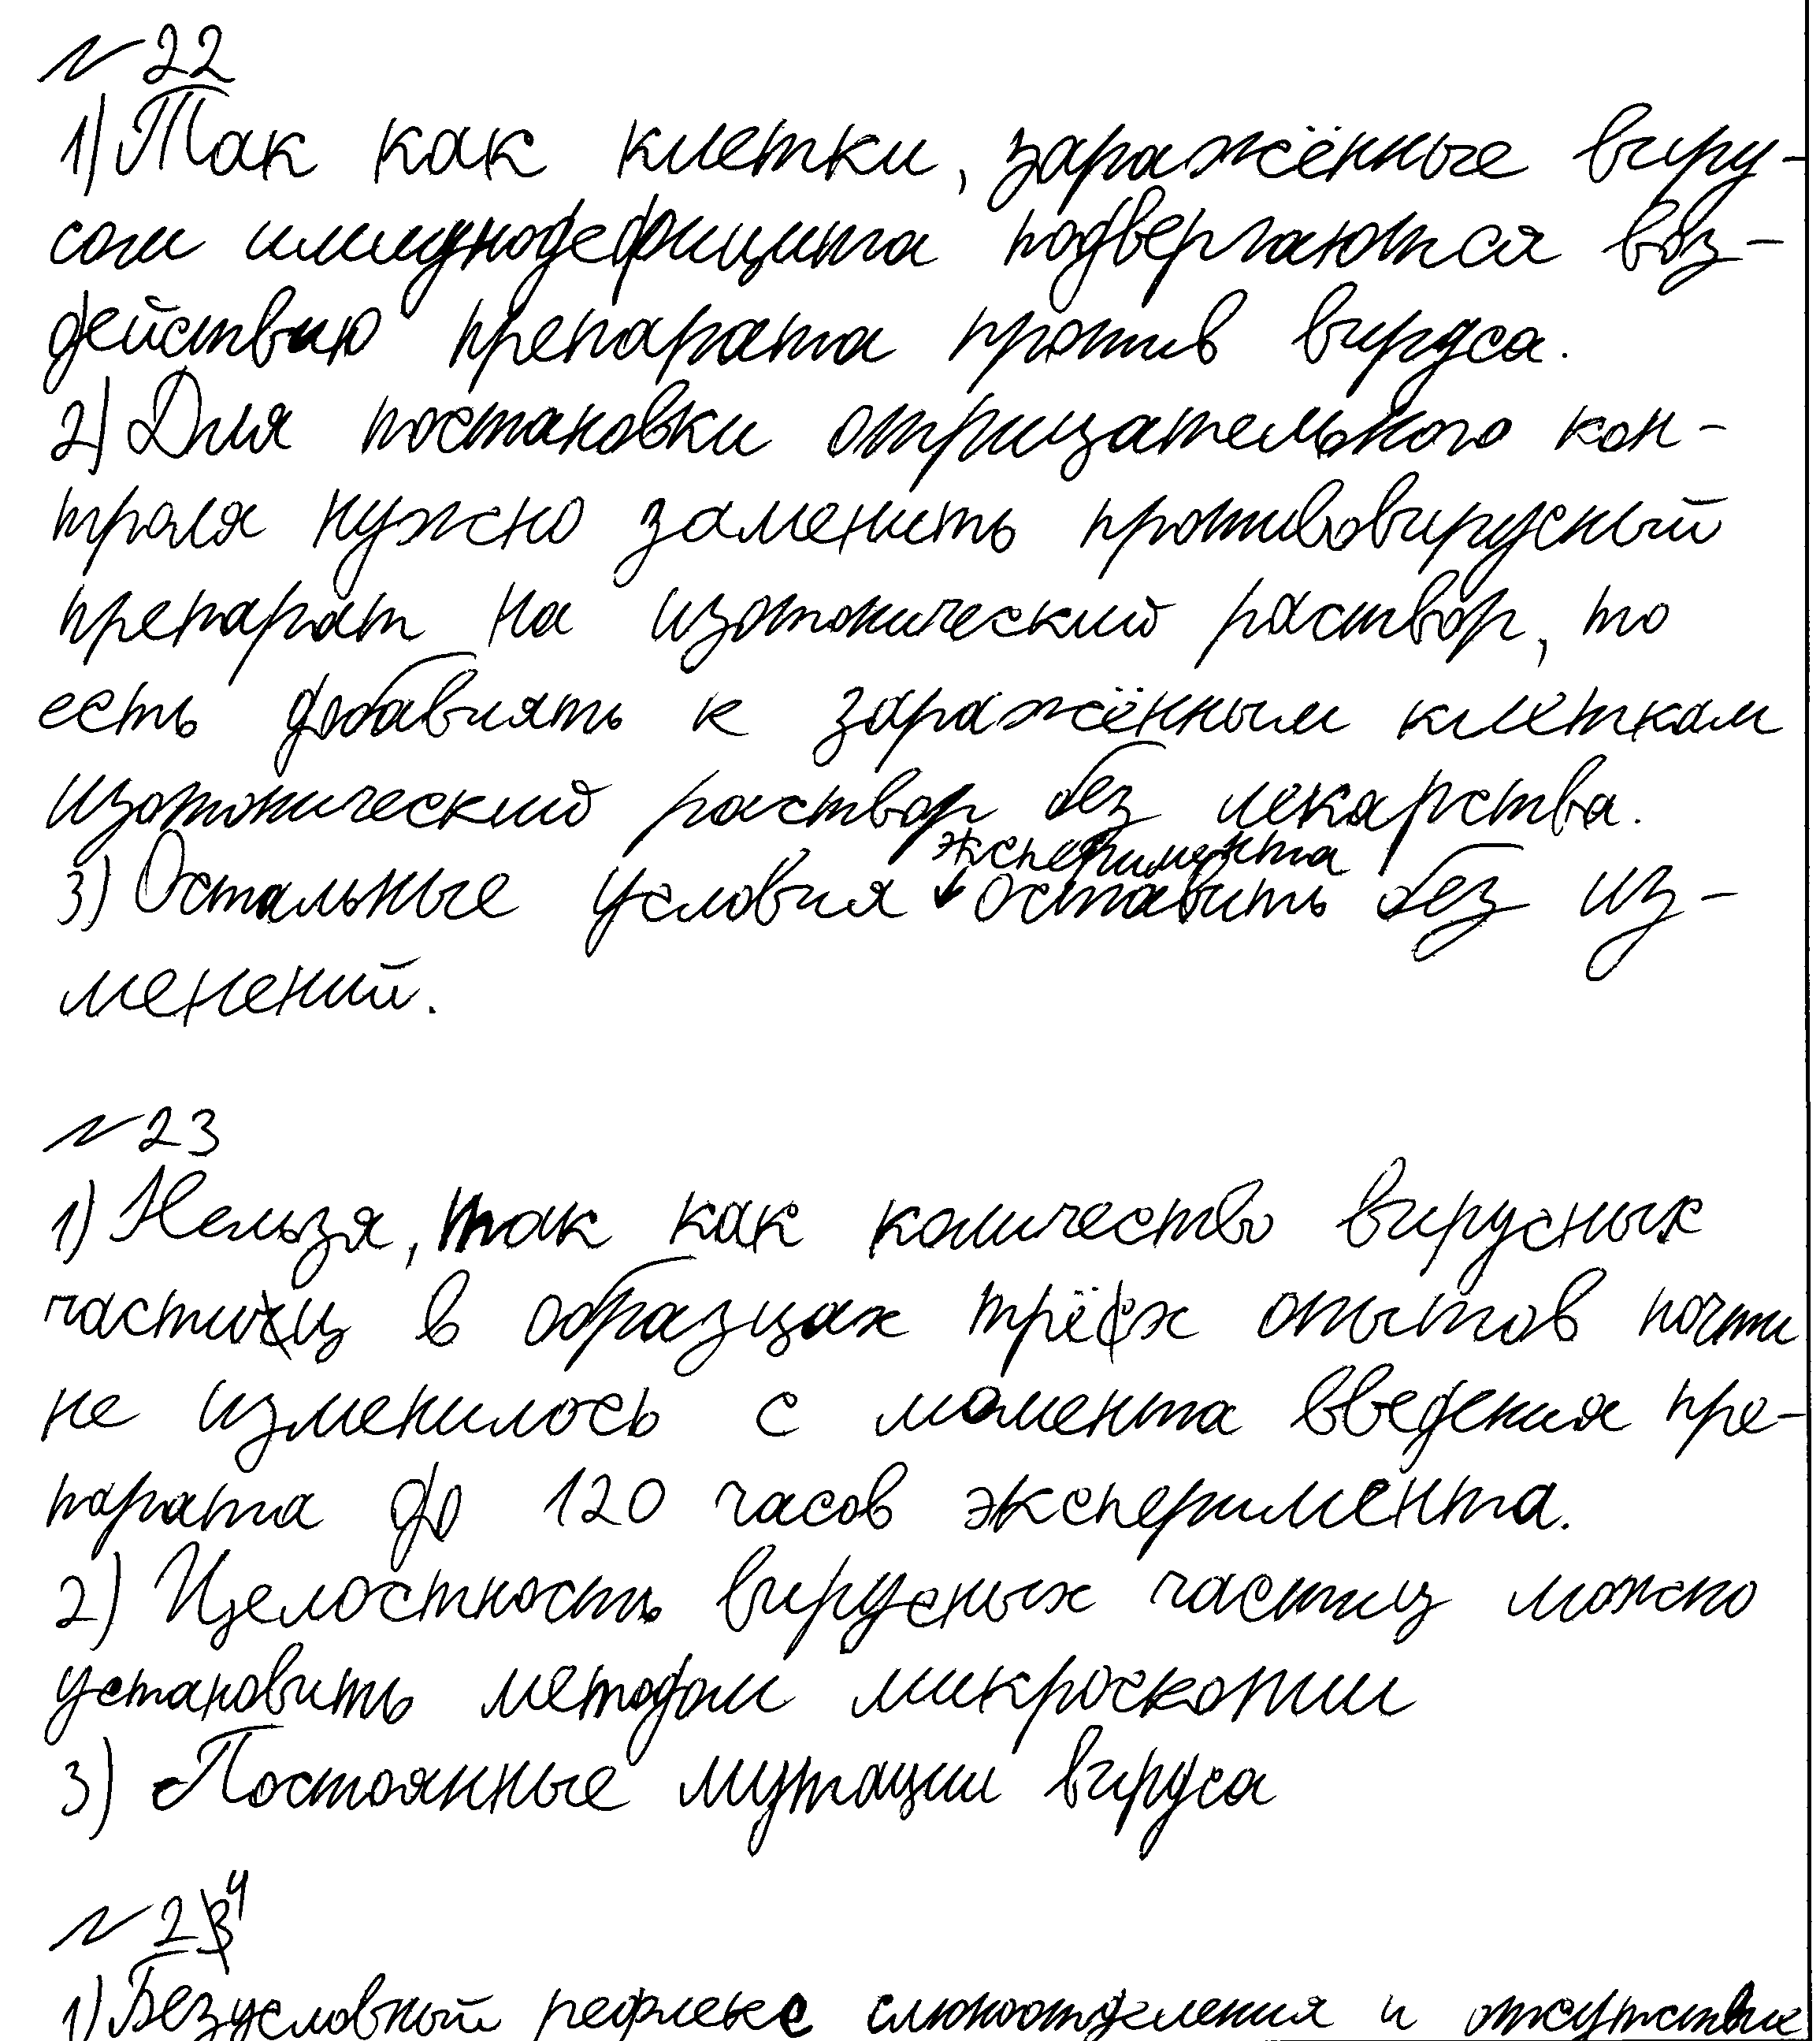 № 22
1) Так как клетки, заражённые виру-
сом иммунодефицита подвергаются воз-
действию препарата против вируса.
2) Для постановки отрицательного кон-
троля нужно заменить противовирусный
препарат на изотонический раствор, то
есть добавлять к заражённым клеткам
изотонический раствор без лекарства.
3) Остальные условия эксперимента оставить без из-
менений.
№ 23
1) Нельзя, так как количество вирусных
частиц в образцах трёх опытов почти
не изменилось с момента введения пре-
парата до 120 часов эксперимента.
2) Целостность вирусных частиц можно
установить методом микроскопии
3) Постоянные мутации вируса
№ 24
1) Безусловный рефлекс слюноотделения и отсутствие